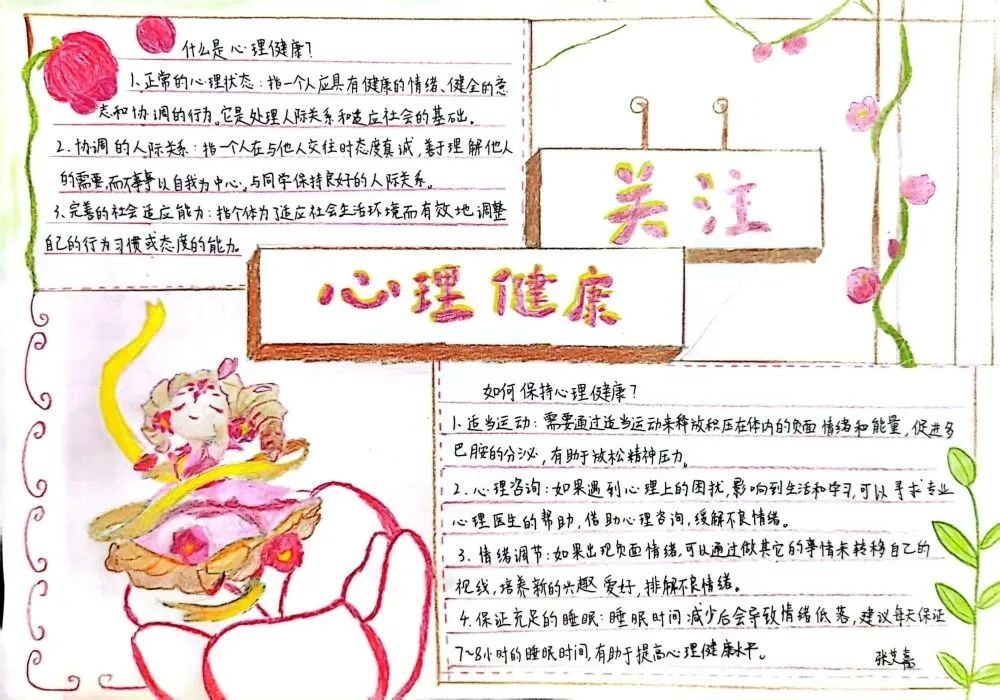 什么是心理健康?
1.正常的心理状态:指一个人应具有健康的情绪、健全的意
志和协调的行为。它是处理人际关系和适应社会的基础。
2.协调的人际关系:指一个人在与他人交往时态度真诚,善于理解他人
的需要,而不事事以自我为中心,与同学保持良好的人际关系。
3.完善的社会适应能力:指个体为了适应社会生活环境而有效地调整
自己的行为习惯或态度的能力。
关注
心理健康
如何保持心理健康?
1.适当运动:需要通过适当运动来释放积压在体内的负面情绪和能量,促进多
巴胺的分泌,有助于放松精神压力。
2.心理咨询:如果遇到心理上的困扰,影响到生活和学习,可以寻求专业
心理医生的帮助,借助心理咨询,缓解不良情绪。
3.情绪调节:如果出现负面情绪,可以通过做其它的事情来转移自己的
视线,培养新的兴趣爱好,排解不良情绪。
4.保证充足的睡眠:睡眠时间减少后会导致情绪低落,建议每天保证
7~8小时的睡眠时间,有助于提高心理健康水平。